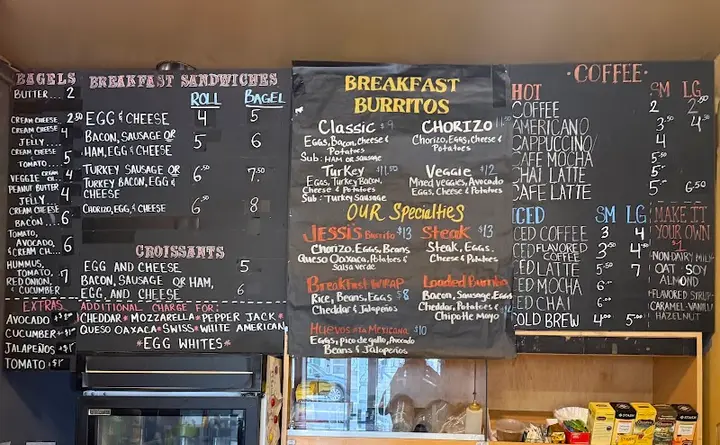 BAGELS
BUTTER... 2
CREAM CHEESE 2.50
CREAM CHEESE 4
JELLY...
CREAM CHEESE 5
TOMATO...
VEGGIE CREAM 4
PEANUT BUTTER 4
JELLY
CREAM CHEESE 6
BACON
TOMATO,
AVOCADO, 6
& CREAM CH...
HUMMUS,
TOMATO, 7
RED ONION, &
CUCUMBER
EXTRAS
AVOCADO
CUCUMBER $1
JALAPEÑOS $1
TOMATO $1
BREAKFAST SANDWICHES
ROLL BAGEL
EGG & CHEESE 4 5
BACON, SAUSAGE OR
HAM, EGG & CHEESE 5 6
TURKEY SAUSAGE OR
TURKEY BACON, EGG & 6.50 7.50
CHEESE
CHORIZO, EGG, & CHEESE 6.50 8
CROISSANTS
EGG AND CHEESE 5
BACON, SAUSAGE OR HAM,
EGG, AND CHEESE 6
ADDITIONAL CHARGE FOR:
CHEDDAR * MOZZARELLA * PEPPER JACK *
QUESO OAXACA * SWISS * WHITE AMERICAN
* EGG WHITES *
BREAKFAST
BURRITOS
Classic $9
Eggs, Bacon, Cheese &
Potatoes
Sub: HAM or SAUSAGE
CHORIZO
Chorizo, Eggs, Cheese &
Potatoes
Turkey $11.50
Eggs, Turkey Bacon,
Cheese & Potatoes
Sub: Turkey Sausage
Veggie $12
Mixed veggies, Avocado
Eggs, Cheese & Potatoes
OUR Specialties
JESSI's Burrito $13
Chorizo, Eggs, Beans
Queso Oaxaca, Potatoes &
Salsa verde
Steak $13
Steak, Eggs,
Cheese & Potatoes
Breakfast WRAP
Rice, Beans, Eggs $8
Cheddar & Jalapeños
Loaded Burrito
Bacon, Sausage, Eggs
Cheddar, Potatoes & $14
Chipotle Mayo
Huevos a la Mexicana $10
Eggs, Pico de gallo, Avocado
Beans & Jalapeños
COFFEE
HOT SM LG
COFFEE 2 2.50
AMERICANO 3.50 4.50
CAPPUCCINO 4
CAFE MOCHA 5.50
CHAI LATTE 5
CAFE LATTE 5 6.50
ICED SM LG
ICED COFFEE 3 4
ICED FLAVORED 4
COFFEE
ICED LATTE 5 7
ICED MOCHA 6
ICED CHAI 6
COLD BREW 4 5
MAKE IT
YOUR OWN
$1
NON-DAIRY MILK
OAT SOY
ALMOND
FLAVORED SYRUP
CARAMEL VANILLA
HAZELNUT